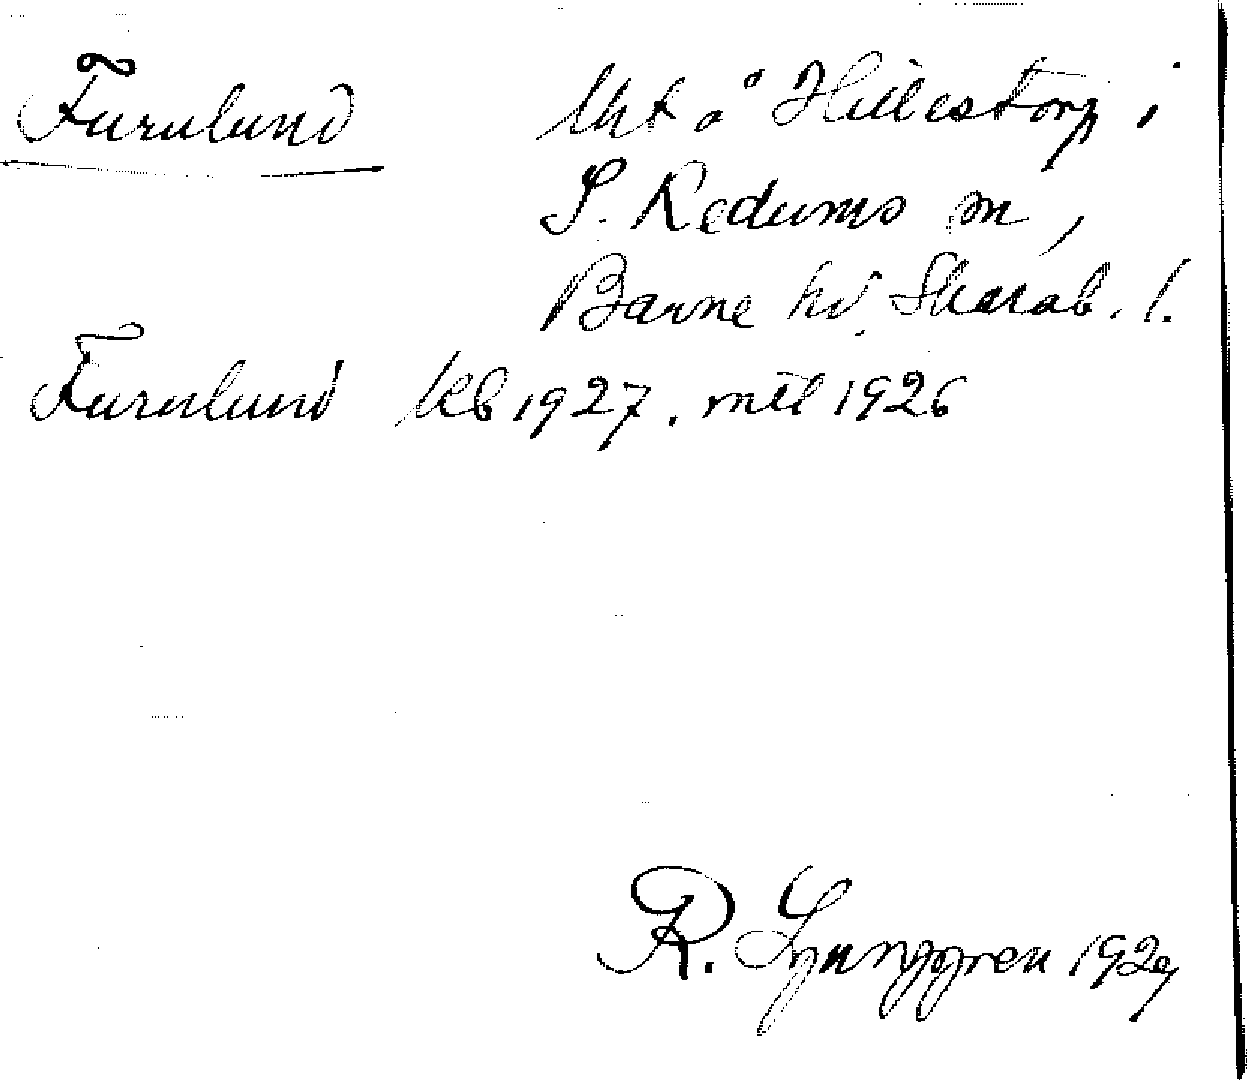 Furulund Lht å Hillestorp i
S. Kedums sn,
Barne hd, Skarab. l.
Furulund kb 1927, mtl 1926
R. Ljunggren 1929